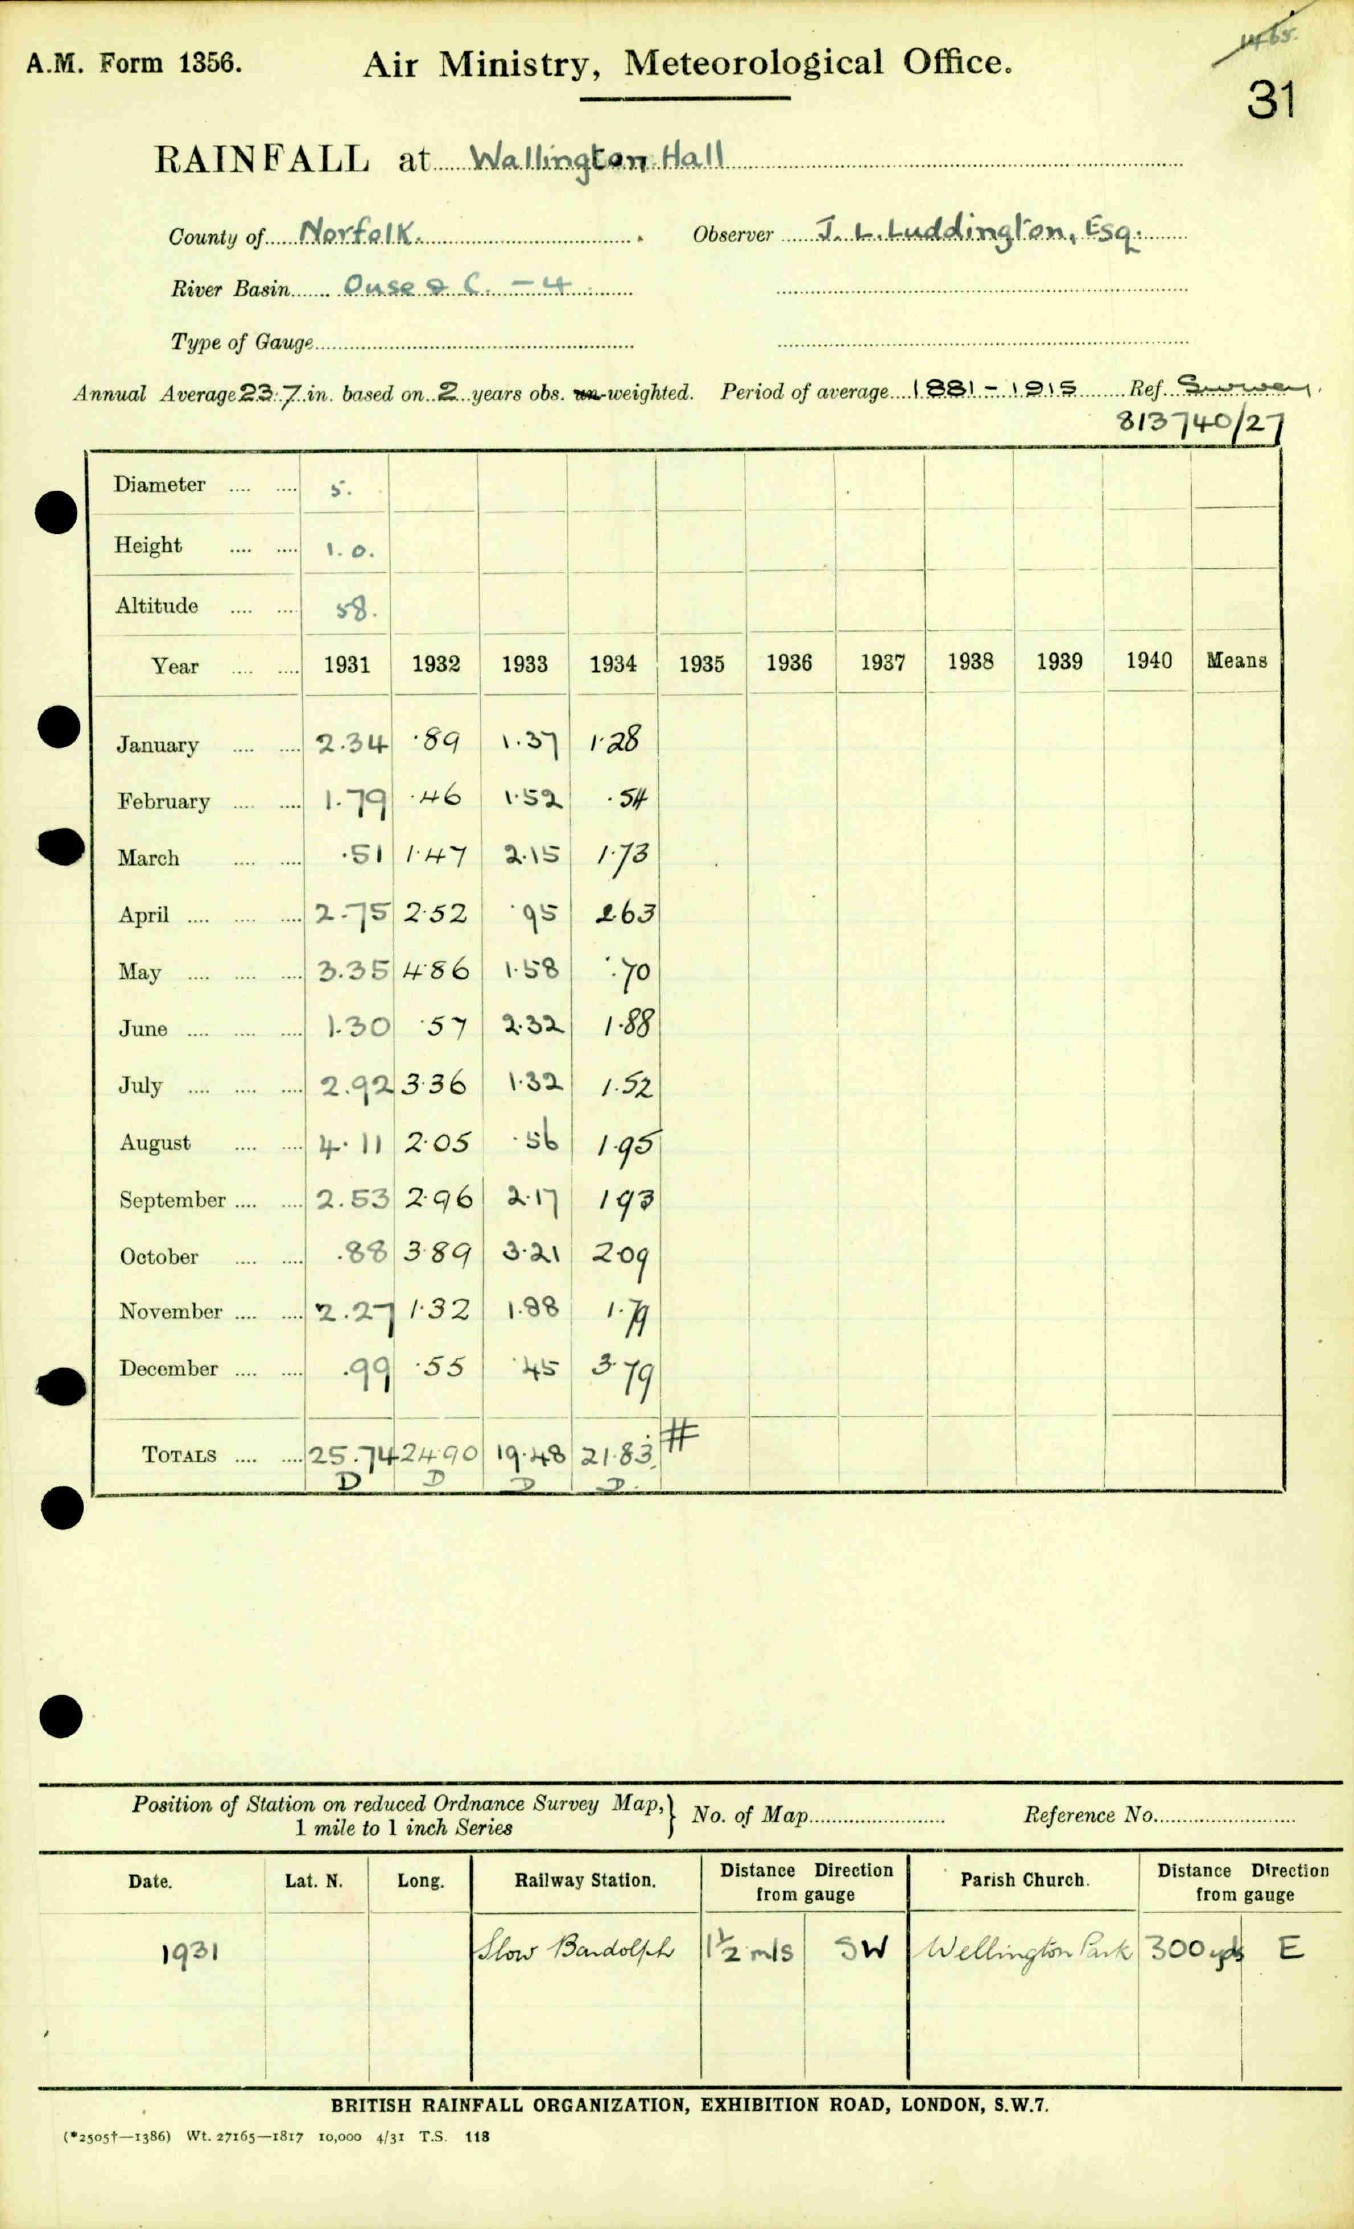 1465.
A.M. Form 1356.
Air Ministry, Meteorological Office.
31
RAINFALL at Wallington Hall
County of Norfolk. Observer J. L. Luddington, Esq.
River Basin Ouse & C. - 4
Type of Gauge
Annual Average 23.7 in. based on 2 years obs. un-weighted. Period of average 1881 - 1915 Ref.
813740/27
Diameter 5.
Height 1.0.
Altitude 58.
Year 1931 1932 1933 1934 1935 1936 1937 1938 1939 1940 Means
January 2.34 .89 1.37 1.28
February 1.79 .46 1.52 .54
March .51 1.47 2.15 1.73
April 2.75 2.52 .95 2.63
May 3.35 4.86 1.58 .70
June 1.30 .57 2.32 1.88
July 2.92 3.36 1.32 1.52
August 4.11 2.05 .56 1.95
September 2.53 2.96 2.17 1 93
October .88 3.89 3.21 2.09
November 2.27 1.32 1.88 1.79
December .99 .55 .45 3.79
TOTALS 25.74 24.90 19.48 21.83 #
D D D D.
Position of Station on reduced Ordnance Survey Map, } No. of Map Reference No.
1 mile to 1 inch Series
Date. Lat. N. Long. Railway Station. Distance Direction from gauge Parish Church. Distance Direction from gauge
1931 Stow Bardolph 1½ mls SW Wellington Park 300 yds E
BRITISH RAINFALL ORGANIZATION, EXHIBITION ROAD, LONDON, S.W.7.
(*2505†—1386) Wt. 27165—1817 10,000 4/31 T.S. 118